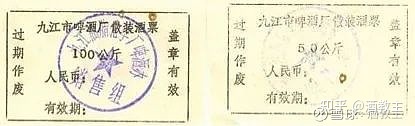 九江市啤酒厂散装酒票
过期作废
100公斤
人民币:
有效期:
盖章有效
啤酒
销售组
九江市啤酒厂散装酒票
过期作废
50公斤
人民币:
有效期:
盖章有效
知乎 @酒教王